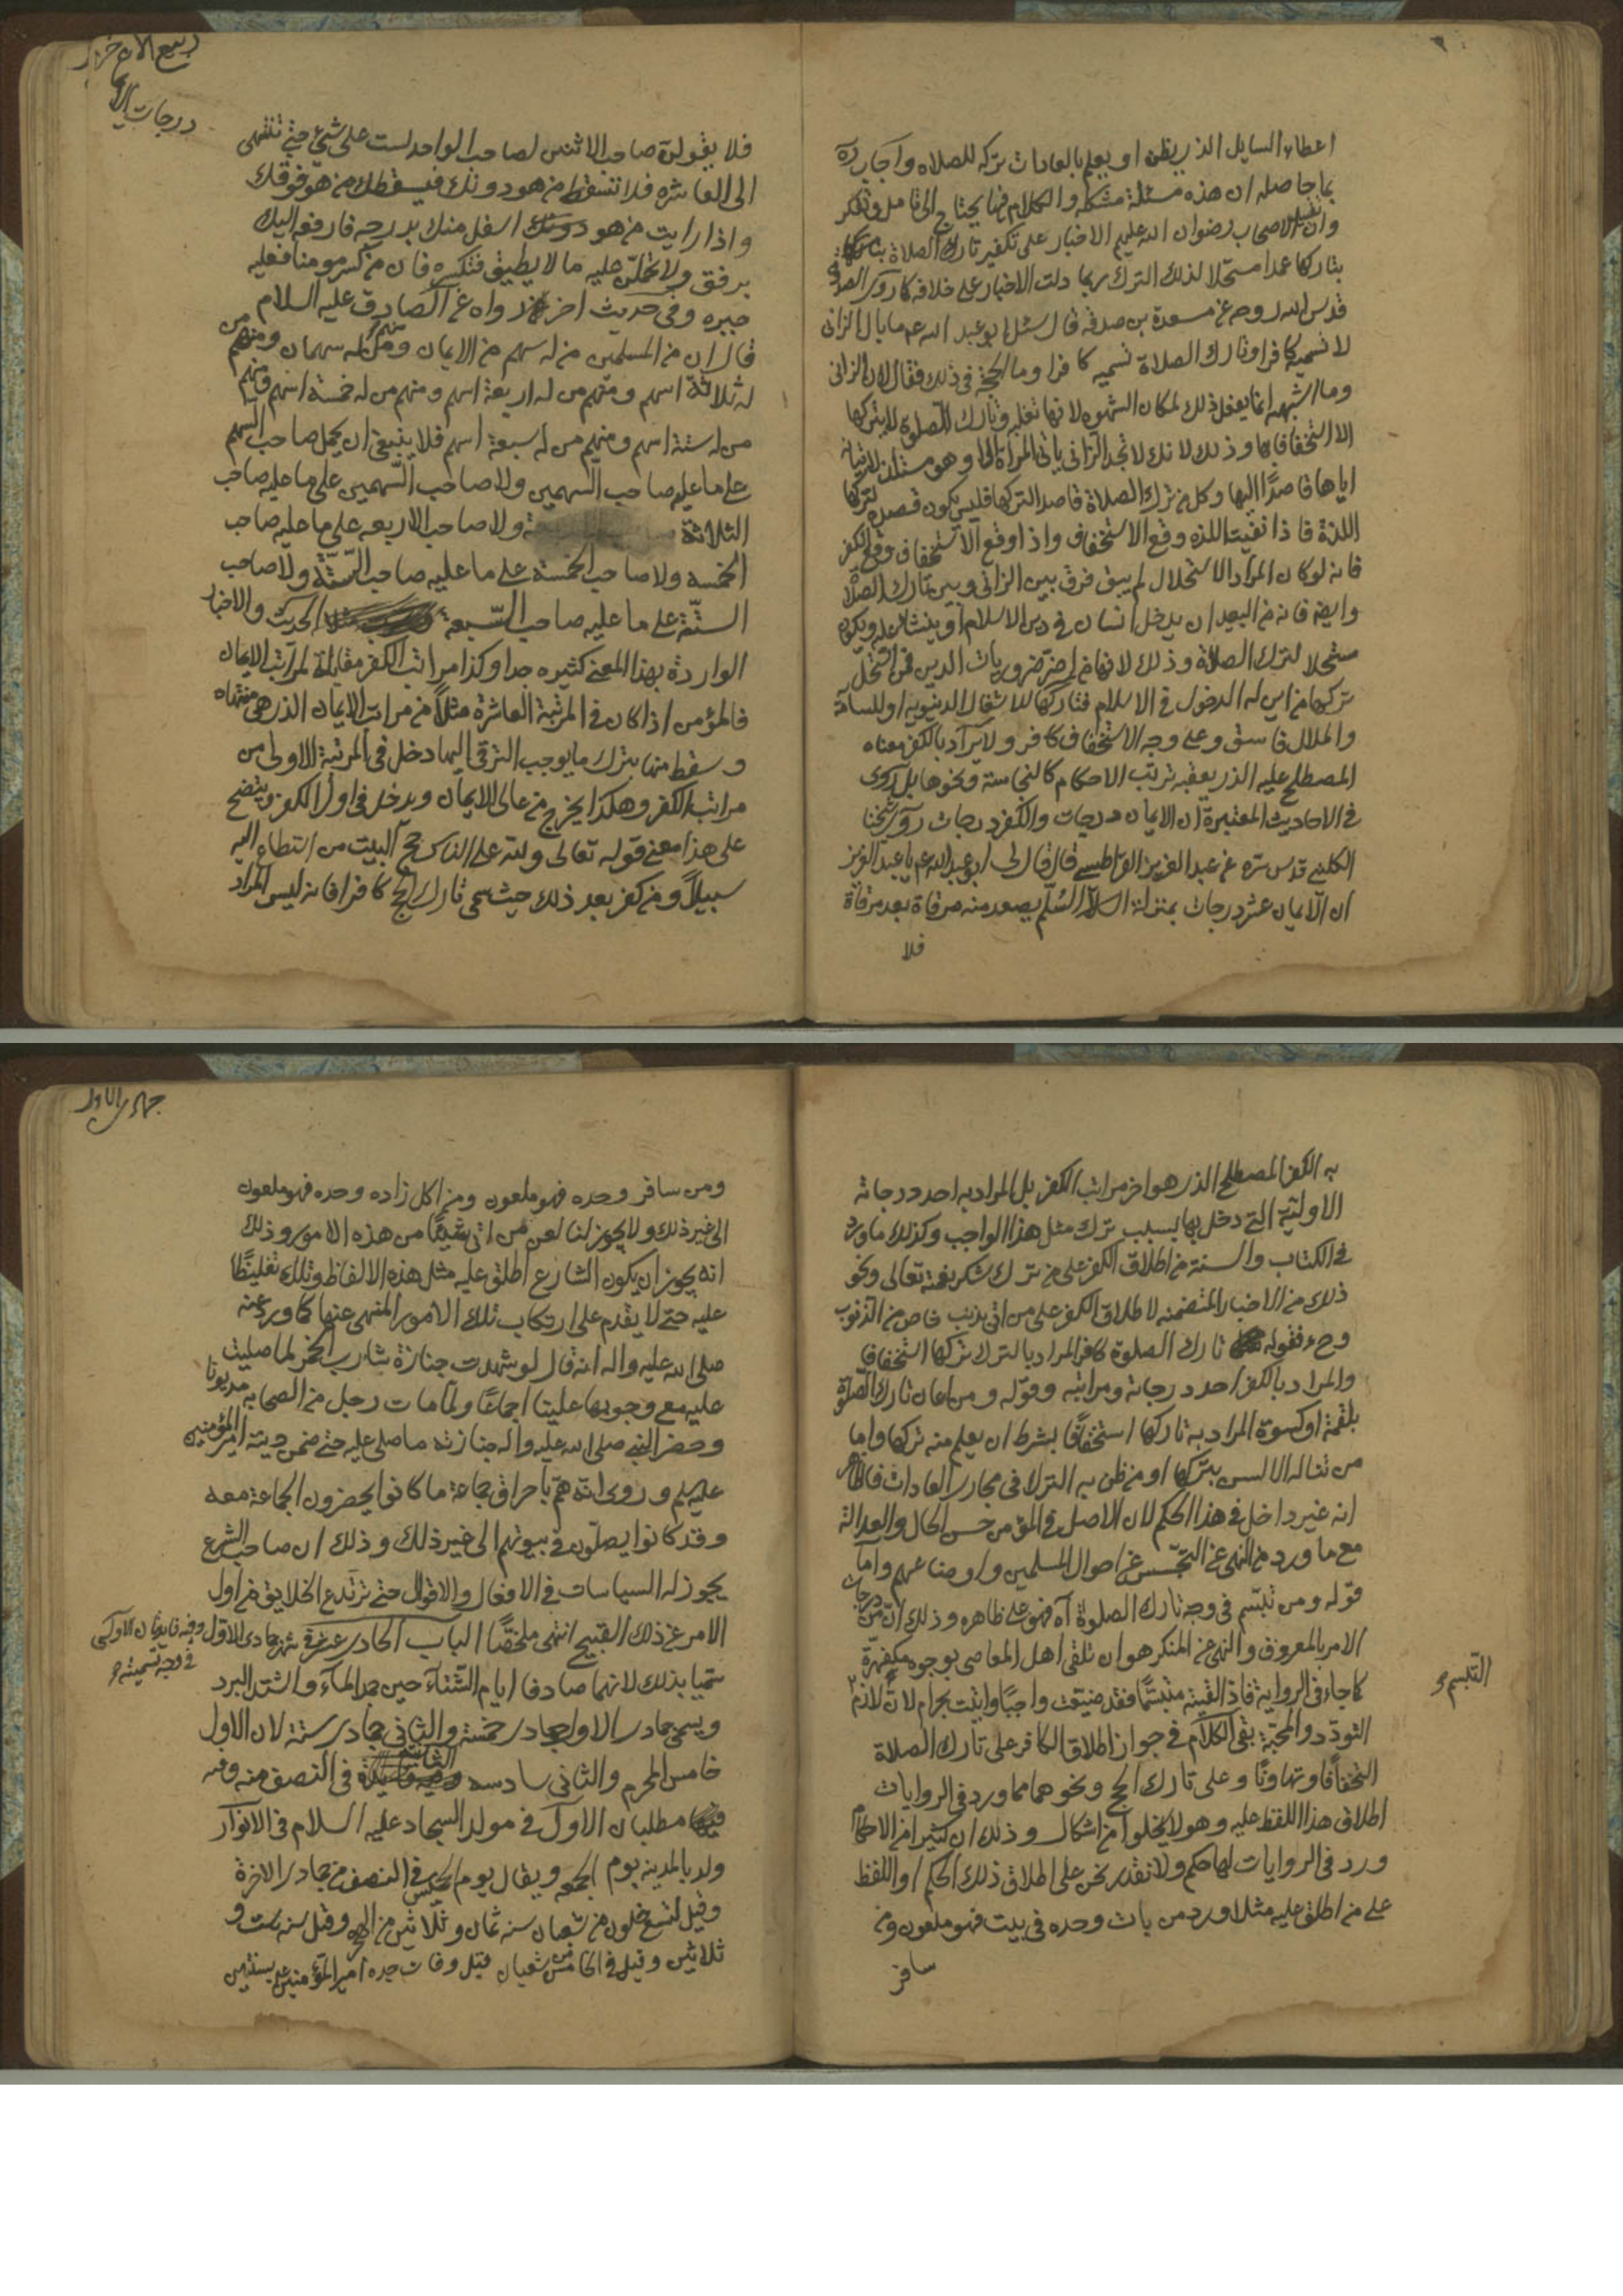 اعطاء السايل الذي يظن او يعلم بالعادات تركه للصلاه واجاب ره
بما حاصله ان هذه مسئلة مشكله والكلام فيها يحتاج الى تامل وتفكر
وان الاصحاب رضوان الله عليهم الاخبار على تكفير تارك الصلاة
بتاركها عمدا مستحلا لذلك الترك ربما دلت الاخبار على خلافه كما روى الصدوق
قدس الله روحه عن مسعدة بن صدقه قال سئل ابو عبد الله عم ما بال الزانى
لا نسميه كافرا وتارك الصلاة نسميه كافرا وما الحجة فى ذلك فقال لان الزانى
وما اشبهه انما يفعل ذلك لمكان الشهوه لانها تغلبه وتارك الصلوة لا يتركها
الا استخفافا بها وذلك لانك لا تجد الزانى ياتى المراة الا وهو مستلذ لاتيانه
اياها قاصدًا اليها وكل من ترك الصلاة قاصدا لتركها فليس يكون قصده لتركها
اللذة فاذا نفيت اللذه وقع الاستخفاف واذا وقع الاستخفاف وقع الكفر
فانه لو كان المراد الاستحلال لم يبق فرق بين الزانى وبين تارك الصلاة
وايضه فانه من البعيد ان يدخل انسان فى دين الاسلام او ينشا عليه ويكون
مستحلا لترك الصلاة وذلك لانها من ضروريات الدين فمن استحل
تركها من اين له الدخول فى الاسلام فتاركها للاشغال الدنيويه او للسآمة
والملال فاسق وعلى وجه الاستخفاف كافر ولا يراد بالكفر معناه
المصطلح عليه الذي يعقبه ترتب الاحكام كالنجاسة ونحوها بل روى
فى الاحاديث المعتبرة ان الايمان درجات والكفر درجات روى شيخنا
الكلينى قدس سره عن عبد العزيز القراطيسى قال قال لى ابو عبد الله عم يا عبد العزيز
ان الايمان عشر درجات بمنزلة السلّم يصعد منه مرقاة بعد مرقاة
فلا
ربيع الاخر
درجات
فلا يقولن صاحب الاثنين لصاحب الواحد لست على شئ حتى تنتهى
الى العاشره فلا تسقط من هو دونك فيسقطك من هو فوقك
واذا رايت من هو اسفل منك بدرجه فارفعه اليك
برفق ولا تحملن عليه ما لا يطيق فتكسره فان من كسر مومنا فعليه
جبره وفى حديث اخر رواه عن الصادق عليه السلام
قال ان من المسلمين من له سهم من الايمان ومنهم من له سهمان ومنهم من
له ثلاثة اسهم ومنهم من له اربعة اسهم ومنهم من له خمسة اسهم ومنهم
من له ستة اسهم ومنهم من له سبعة اسهم فلا ينبغى ان يحمل صاحب السهم
على ما عليه صاحب السهمين ولا صاحب السهمين على ما عليه صاحب
الثلاثة ولا صاحب الاربعه على ما عليه صاحب
الخمسه ولا صاحب الخمسة على ما عليه صاحب الستّة ولا صاحب
الستّة على ما عليه صاحب السّبعة الحديث والاخبار
الواردة بهذا المعنى كثيره جدا وكذا مراتب الكفر مقابلة لمراتب الايمان
فالمؤمن اذا كان فى المرتبة العاشرة مثلاً من مراتب الايمان الذى هى منتهاه
وسقط منها بترك ما يوجب الترقى اليها دخل فى المرتبة الاولى من
مراتب الكفر وهكذا يخرج من عالى الايمان ويدخل فى اول الكفر ويتضح
على هذا معنى قوله تعالى ولله على الناس حج البيت من استطاع اليه
سبيلاً ومن كفر بعد ذلك حيث سمى تارك الحج كافرا فانه ليس المراد
به الكفر المصطلح الذى هو اخر مراتب الكفر بل المراد به احد درجاته
الاوليّة التى دخل بها بسبب ترك مثل هذا الواجب وكذلك ما ورد
فى الكتاب والسنة من اطلاق الكفر على من ترك شكر نعمة تعالى ونحو
ذلك من الاخبار المتضمنه لاطلاق الكفر على من اتى بذنب خاص من الذنوب
وحء فقوله تارك الصلوة كافر المراد بالترك تركها استخفافا
والمراد بالكفر احد درجاته ومراتبه وقوله ومن اعان تارك الصّلوة
بلقمة او كسوة المراد به تاركها استخفافًا بشرط ان يعلم منه تركها واما
من تناله الالسن بتركها او من ظن به الترك فى مجارى العادات فالظاهر
انه غير داخل فى هذا الحكم لان الاصل فى المؤمن حسن الحال والعدالة
مع ما ورد من النهى عن التجسّس عن احوال المسلمين واوضاعهم واما
قوله ومن تبسّم فى وجه تارك الصلوة آه فهو على ظاهره وذلك ان من درجات
الامر بالمعروف والنهى عن المنكر هو ان تلقى اهل المعاصى بوجوه مكفهرّة
كما جاء فى الرواية فاذا لقيته متبسّمًا فقد ضيّعت واجبًا واتيت بحرام لان لازم
التبسم
التودّد والمحبّة بقى الكلام فى جواز اطلاق الكافر على تارك الصلاة
استخفافًا وتهاونًا وعلى تارك الحج ونحوهما مما ورد فى الروايات
اطلاق هذا اللفظ عليه وهو لا يخلوا من اشكال وذلك ان كثيرا من الاحكام
ورد فى الروايات لها حكم ولا نقدر نحن على اطلاق ذلك الحكم او اللفظ
على من اطلق عليه مثلا ورد من بات وحده فى بيت فهو ملعون ومن
سافر
جمادى الاول
ومن سافر وحده فهو ملعون ومن اكل زاده وحده فهو ملعون
الى غير ذلك ولا يجوز لنا لعن من اتى شيئًا من هذه الامور وذلك
انه يجوز ان يكون الشارع اطلق عليه مثل هذه الالفاظ وتلك تغليظًا
عليه حتى لا يقدم على ارتكاب تلك الامور المنهى عنها كما ورد عنه
صلى الله عليه واله انه قال لو شهدت جنازة شارب الخمر لما صليت
عليه مع وجوبها علينا اجماعًا ولمّا مات رجل من الصحابه مديونا
وحضر النبى صلى الله عليه واله جنازته ما صلى عليه حتى ضمن دينه امير المؤمنين
عليه سلم وروى انه همّ باحراق جماعة ما كانوا يحضرون الجماعة معه
وقد كانوا يصلّون فى بيوتهم الى غير ذلك وذلك ان صاحب الشرع
يجوز له السياسات فى الافعال والاقوال حتى ترتدع الخلايق من اول
الامر عن ذلك القبيح انتهى ملخصًا الباب الحادى عشر فى شهر جمادى الاول وفيه فايدتان الاولى
فى وجه تسميته
سمّيا بذلك لانهما صادفا ايام الشّتاء حين جمد الماء واشتد البرد
ويسمى جمادى الاول جمادى خمسة والثانى جمادى ستة لان الاول
خامس المحرم والثانى سادسه الثانية فى النصف منه وفيه
مطلبان الاول فى مولد السجاد عليه السلام فى الانوار
ولد بالمدينه يوم الجمعه ويقال يوم الخميس فى النصف من جمادى الاخرة
وقيل لتسع خلون من شعبان سنه ثمان وثلاثين من الهجره وقيل سنه ست و
ثلاثين وقيل فى الخامس من شعبان قبل وفات جده امير المؤمنين عم بسنتين